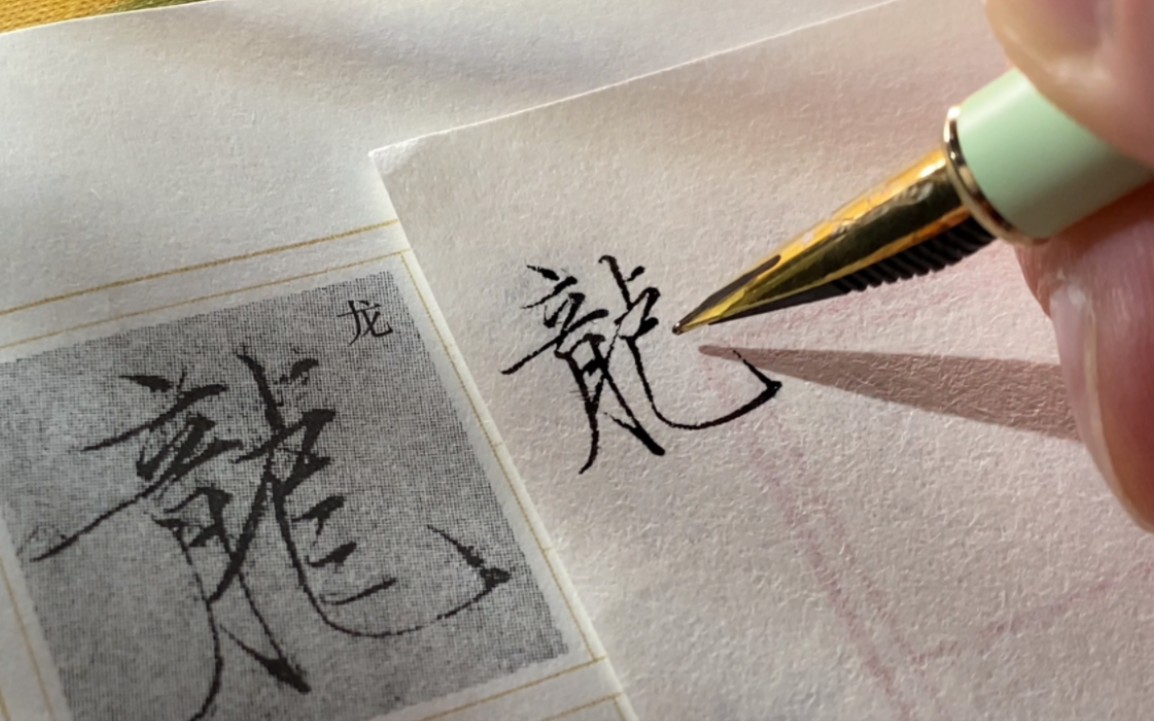 龙
龍
龍